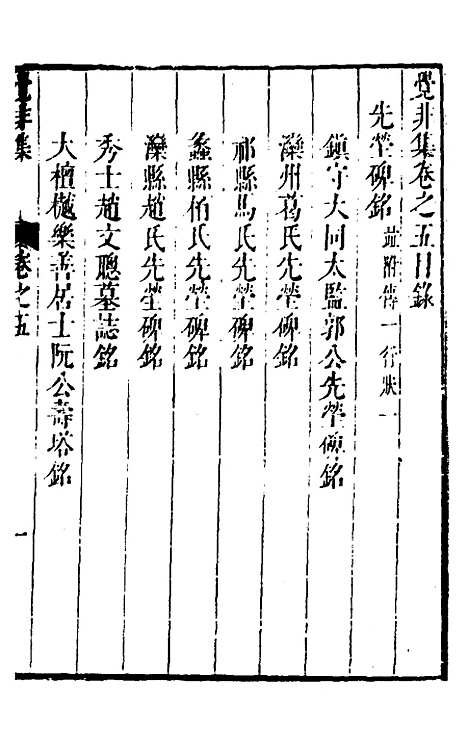 覺非集卷之五目錄
先塋碑銘 並附傳一行狀一
鎮守大同太監郭公先塋碑銘
灤州葛氏先塋碑銘
祁縣馬氏先塋碑銘
蠡縣伯氏先塋碑銘
灤縣趙氏先塋碑銘
秀士趙文聰墓誌銘
大檀樾樂善居士阮公壽塔銘
覺非集
卷之五
一